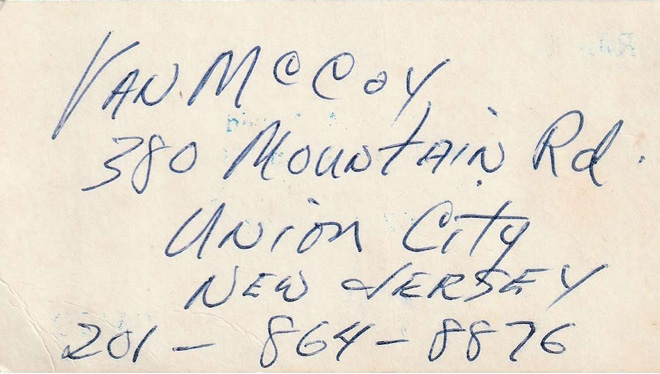 Van McCoy
380 Mountain Rd.
Union City
New Jersey
201-864-8876